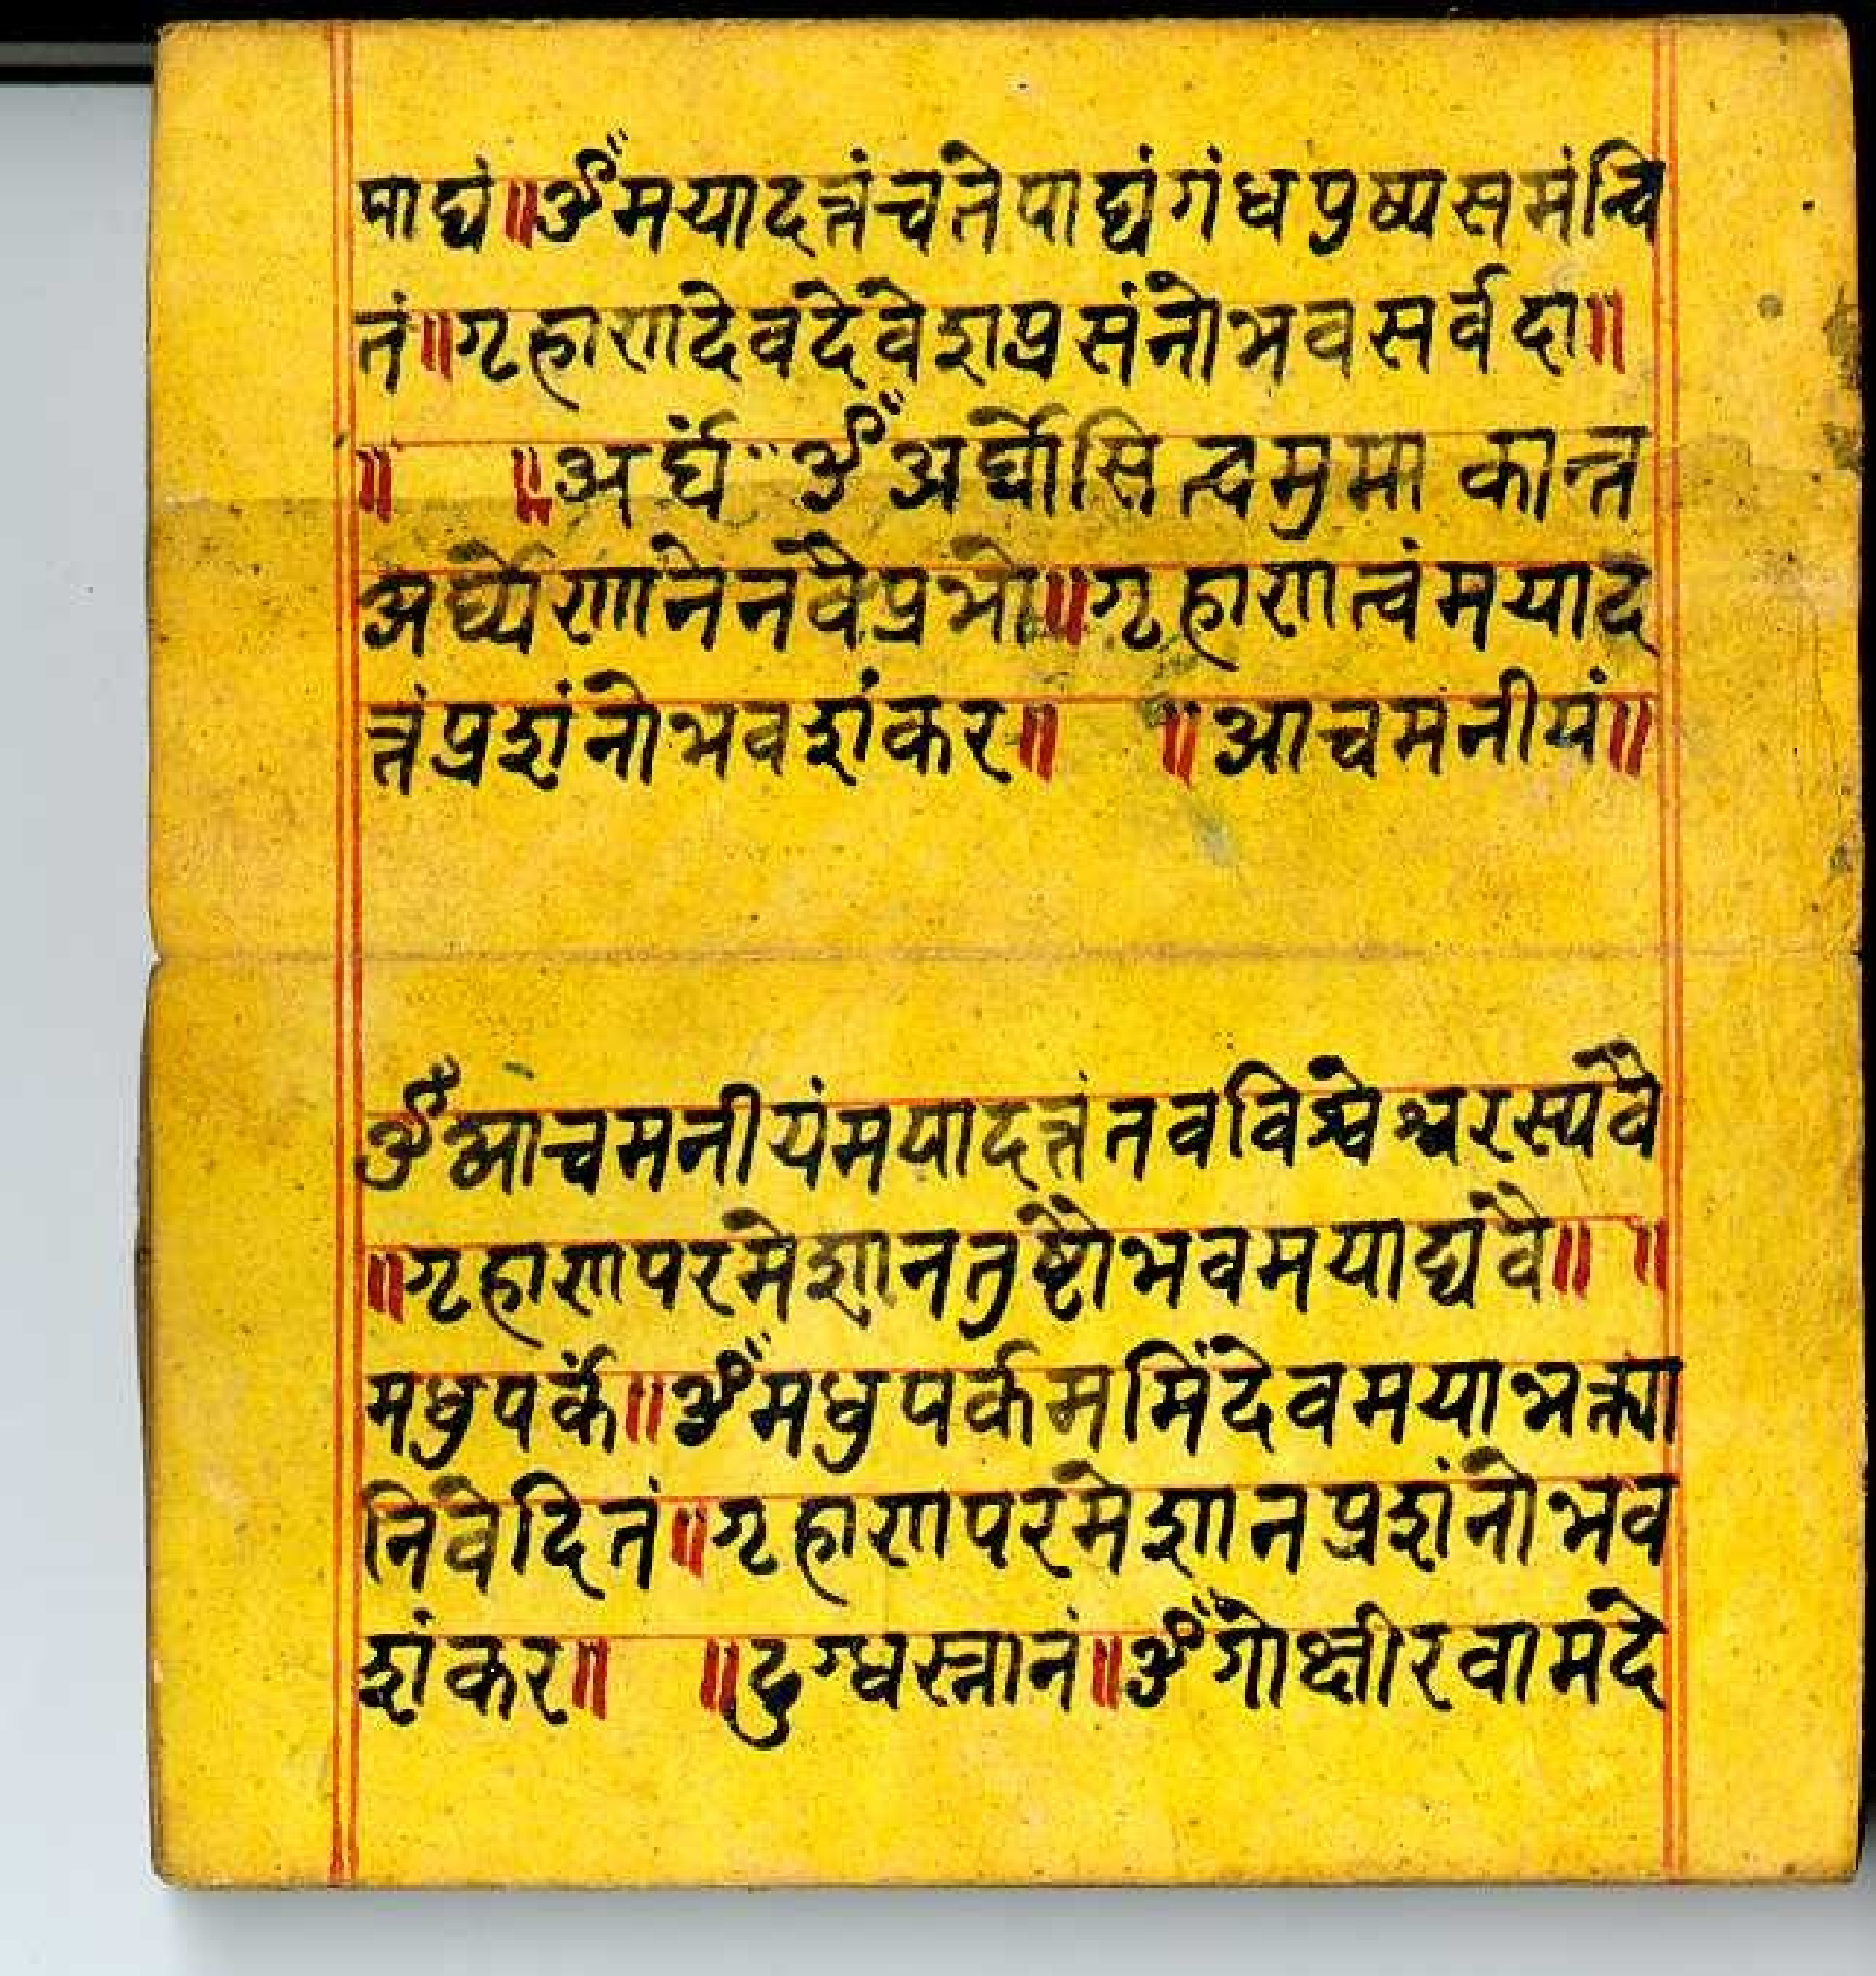 पाद्यं॥ॐमयादत्तंचतेपाद्यंगंधपुष्पसमंन्वि
तं॥गृहाणदेवदेवेशप्रसंनोभवसर्वदा॥
॥ ॥अर्घं ॐअर्घोसि त्वमुमा कान्त
अर्घ्येणानेनवैप्रभो॥गृहाणत्वंमयाद
त्तंप्रशंनोभवशंकर॥ ॥आचमनीयं॥
ॐआचमनीयंमयादत्तंतवविश्वेश्वरस्यवै
॥गृहाणपरमेशानतुष्टोभवमयाद्यवै॥ ॥
मधुपर्कं॥ॐमधुपर्कममिंदेवमयाभक्त्या
निवेदितं॥गृहाणपरमेशानप्रशंनोभव
शंकर॥ ॥दुग्धस्नानं॥ॐगोक्षीरवामदे